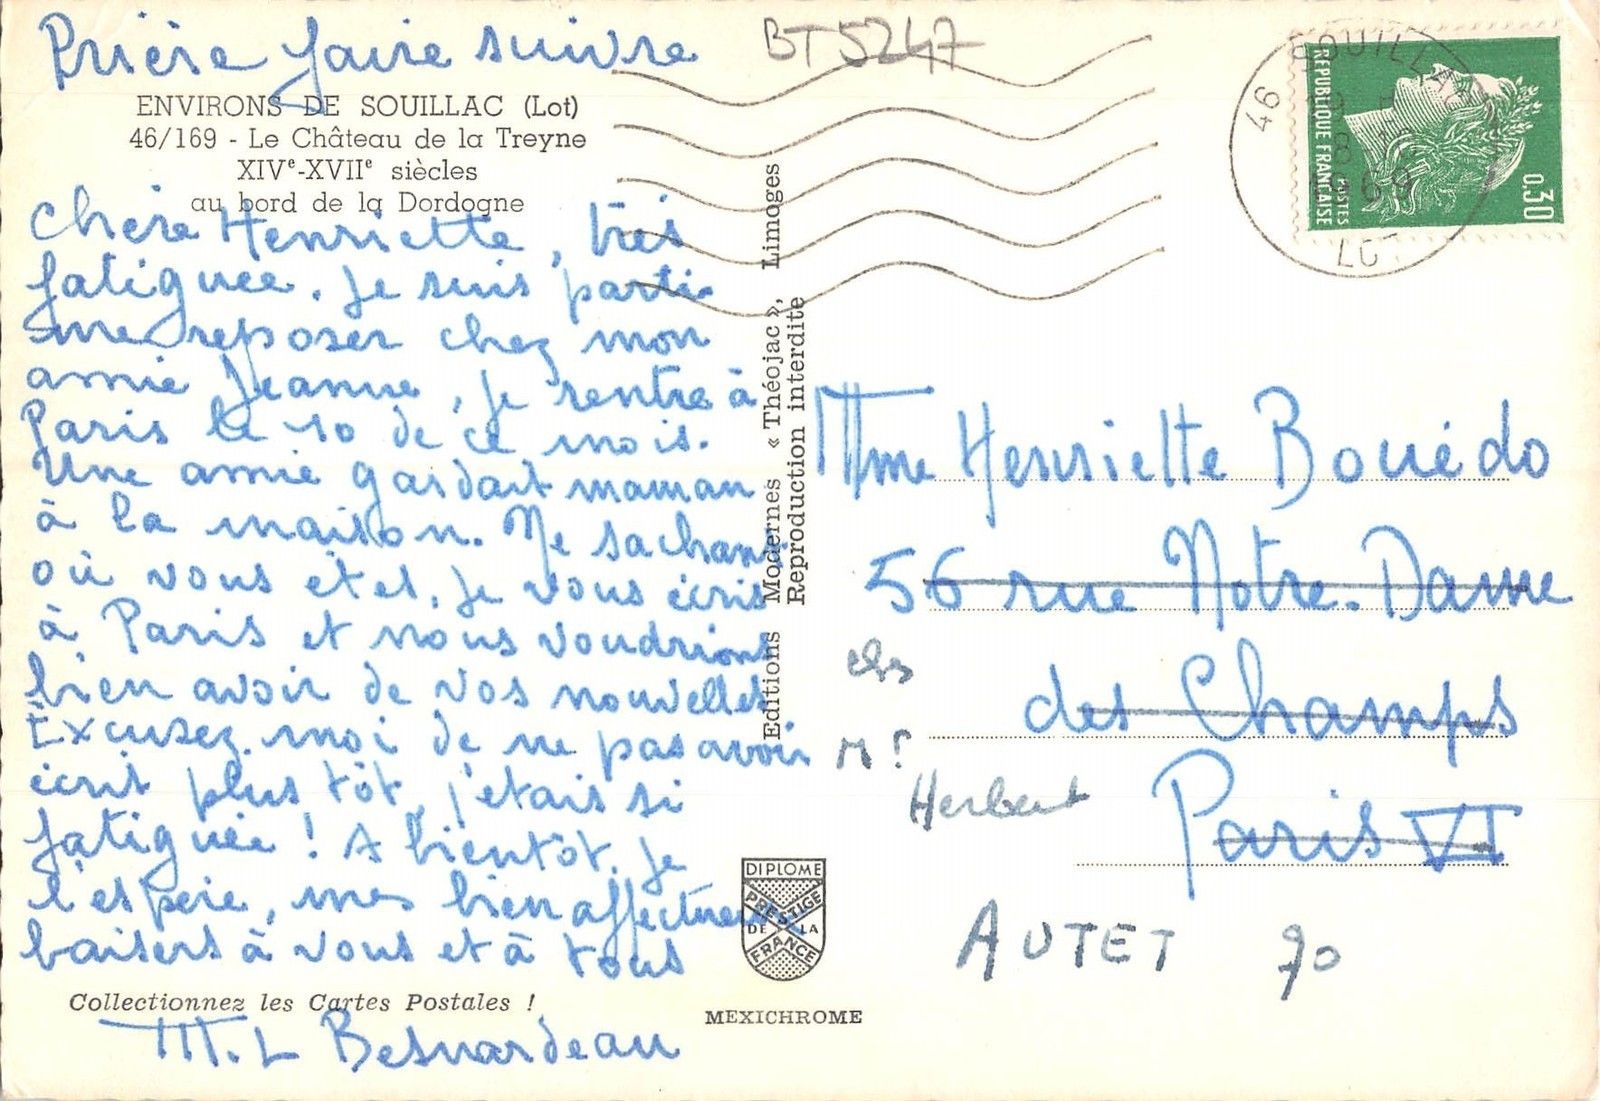 Prière faire suivre
BT 5247
ENVIRONS DE SOUILLAC (Lot)
46/169 - Le Château de la Treyne
XIVe-XVIIe siècles
au bord de la Dordogne
Chère Henriette, très
fatiguée. Je suis partie
me reposer chez mon
amie Jeanne, je rentre à
Paris le 10 de ce mois.
Une amie gardait maman
à la maison. Ne sachant
où vous êtes, je vous écris
à Paris et nous voudrions
bien avoir de vos nouvelles
Excusez. moi de ne pas avoir
écrit plus tôt, j'étais si
fatiguée ! A bientôt, je
l'espère, mes bien affectueux
baisers à vous et à tous
Collectionnez les Cartes Postales !
M. L Besnardeau
Editions Modernes « Théojac », Limoges
Reproduction interdite
DIPLOME
PRESTIGE
DE LA
FRANCE
MEXICHROME
46 SOUILLAC
8
1969
LOT
REPUBLIQUE FRANCAISE
POSTES
0,30
Mme Henriette Bouédo
56 rue Notre-Dame
des Champs
Paris VI
chz
Mr
Herbert
AUTET 70